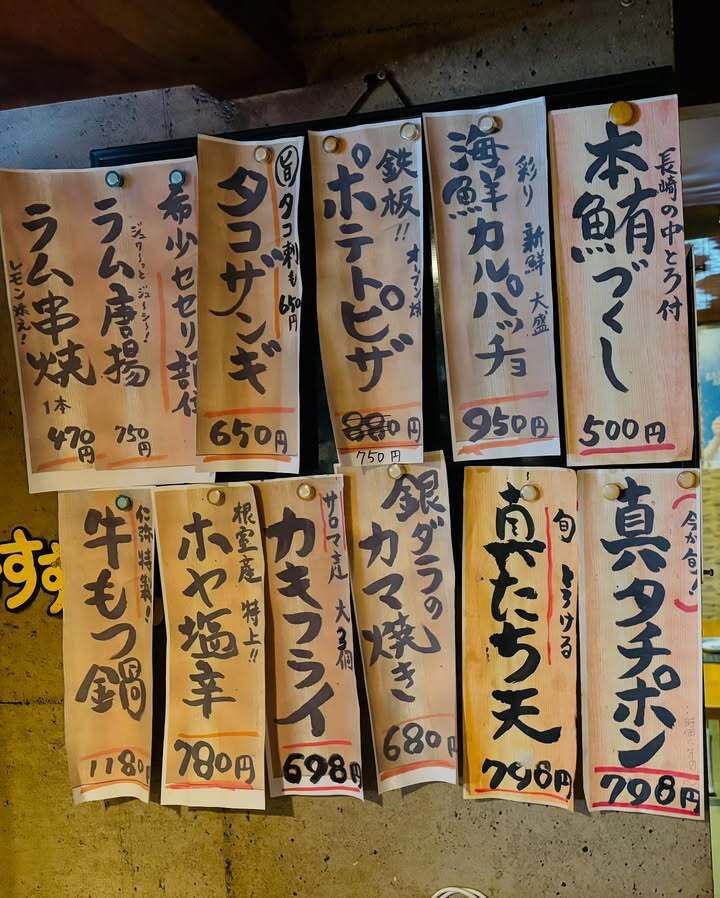 長崎の中とろ付
本鮪づくし
500円
彩り 新鮮 大盛
海鮮カルパッチョ
950円
鉄板!! オーブン焼
ポテトピザ
880円
750円
旬 タコ刺も650円
タコザンギ
650円
希少セセリ部位
ジュワーっとジューシー!
ラム唐揚
750円
ラム串焼
レモン添え!
1本
470円
(今が旬!)
真タチポン
798円
旬 とろける
真たち天
798円
銀ダラの
カマ焼き
680円
サロマ産 大3個
カキフライ
698円
根室産 特上!!
ホヤ塩辛
780円
仁弥特製!
牛もつ鍋
1180円
すす